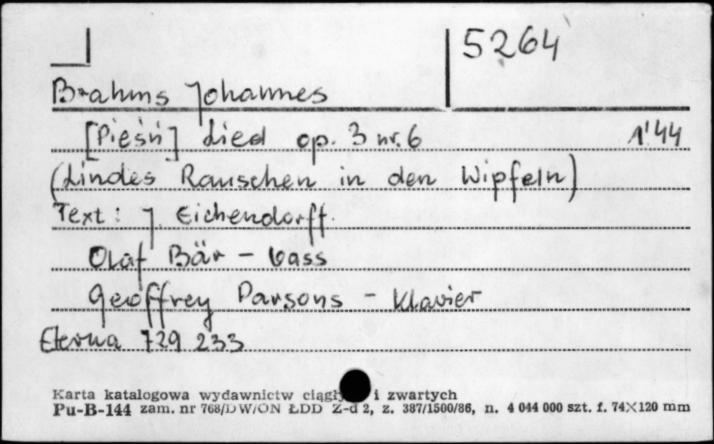 5264
Brahms Johannes
[Pieśń] Lied op. 3 nr. 6 1'44
(Lindes Rauschen in den Wipfeln)
Text: J. Eichendorff.
Olaf Bär - bass
Geoffrey Parsons - Klavier
Eterna 729 233
Karta katalogowa wydawnictw i zwartych
Pu-B-144 zam. nr 768/DW/ON ŁDD Z-d 2, z. 387/1500/86, n. 4 044 000 szt. f. 74×120 mm